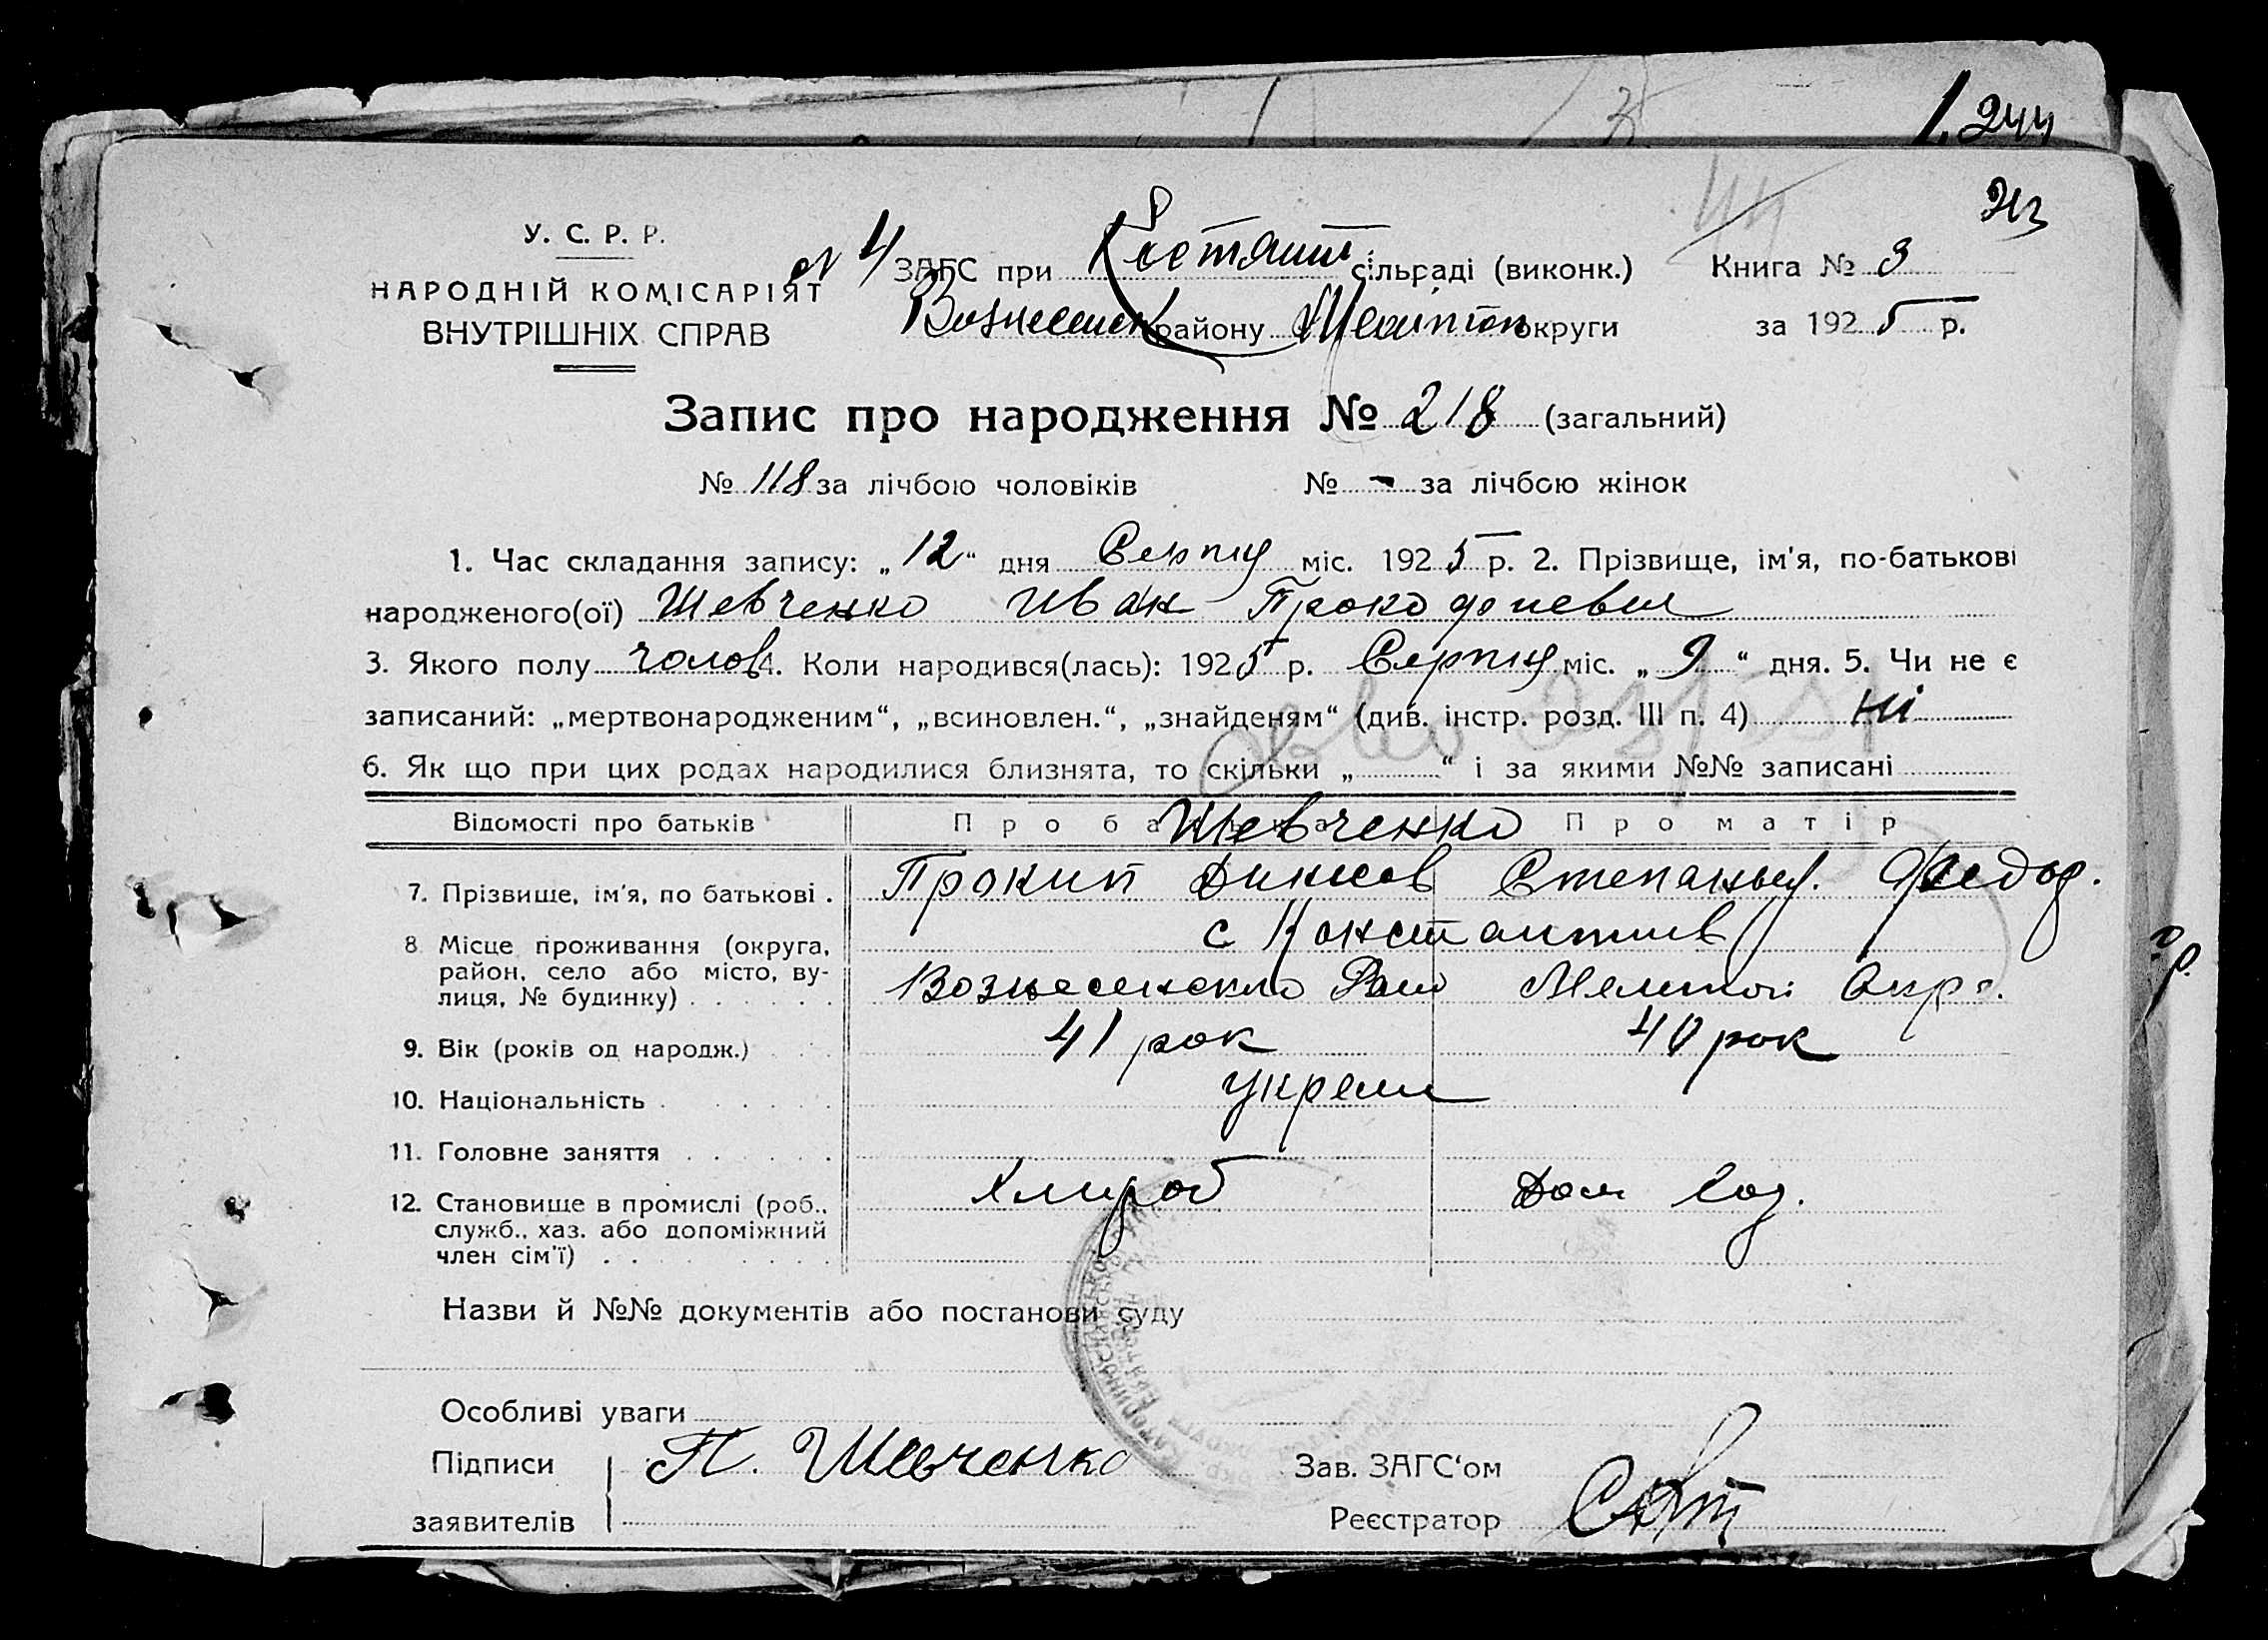 1. 244
44
213
У. С. Р. Р.
НАРОДНІЙ КОМІСАРІЯТ
ВНУТРІШНІХ СПРАВ
№ 4 ЗАГС при Костянт. сільраді (виконк.) Книга № 3
Вознесенск району Мелітоп округи за 1925 р.
Запис про народження № 218 (загальний)
№ 118 за лічбою чоловіків № - за лічбою жінок
1. Час складання запису: „12“ дня Серпня міс. 1925 р. 2. Прізвище, ім'я, по-батькові
народженого(ої) Шевченко Иван
3. Якого полу чолов 4. Коли народився(лась): 1925 р. Серпня міс. „9“ дня. 5. Чи не є
записаний: „мертвонародженим“, „всиновлен.“, „знайденям“ (див. інстр. розд. III п. 4) Ні
6. Як що при цих родах народилися близнята, то скільки „ “ і за якими №№ записані
Відомості про батьків Про батька Шевченко Про матір
7. Прізвище, ім'я, по батькові . Прокип Степаныд. Федор.
с Константинов
8 Місце проживання (округа,
район, село або місто, вулиця, № будинку) Вознесенского Мелитоп Окр.
9. Вік (років од народж.) 41 рок 40 рок
10. Національність
11. Головне заняття
12. Становище в промислі (роб.. Хлироб Дом Хоз.
служб.. хаз. або допоміжний
член сім'ї)
Назви й №№ документів або постанови суду
Особливі уваги
Підписи П. Шевченко Зав. ЗАГС'ом
заявителів Реєстратор